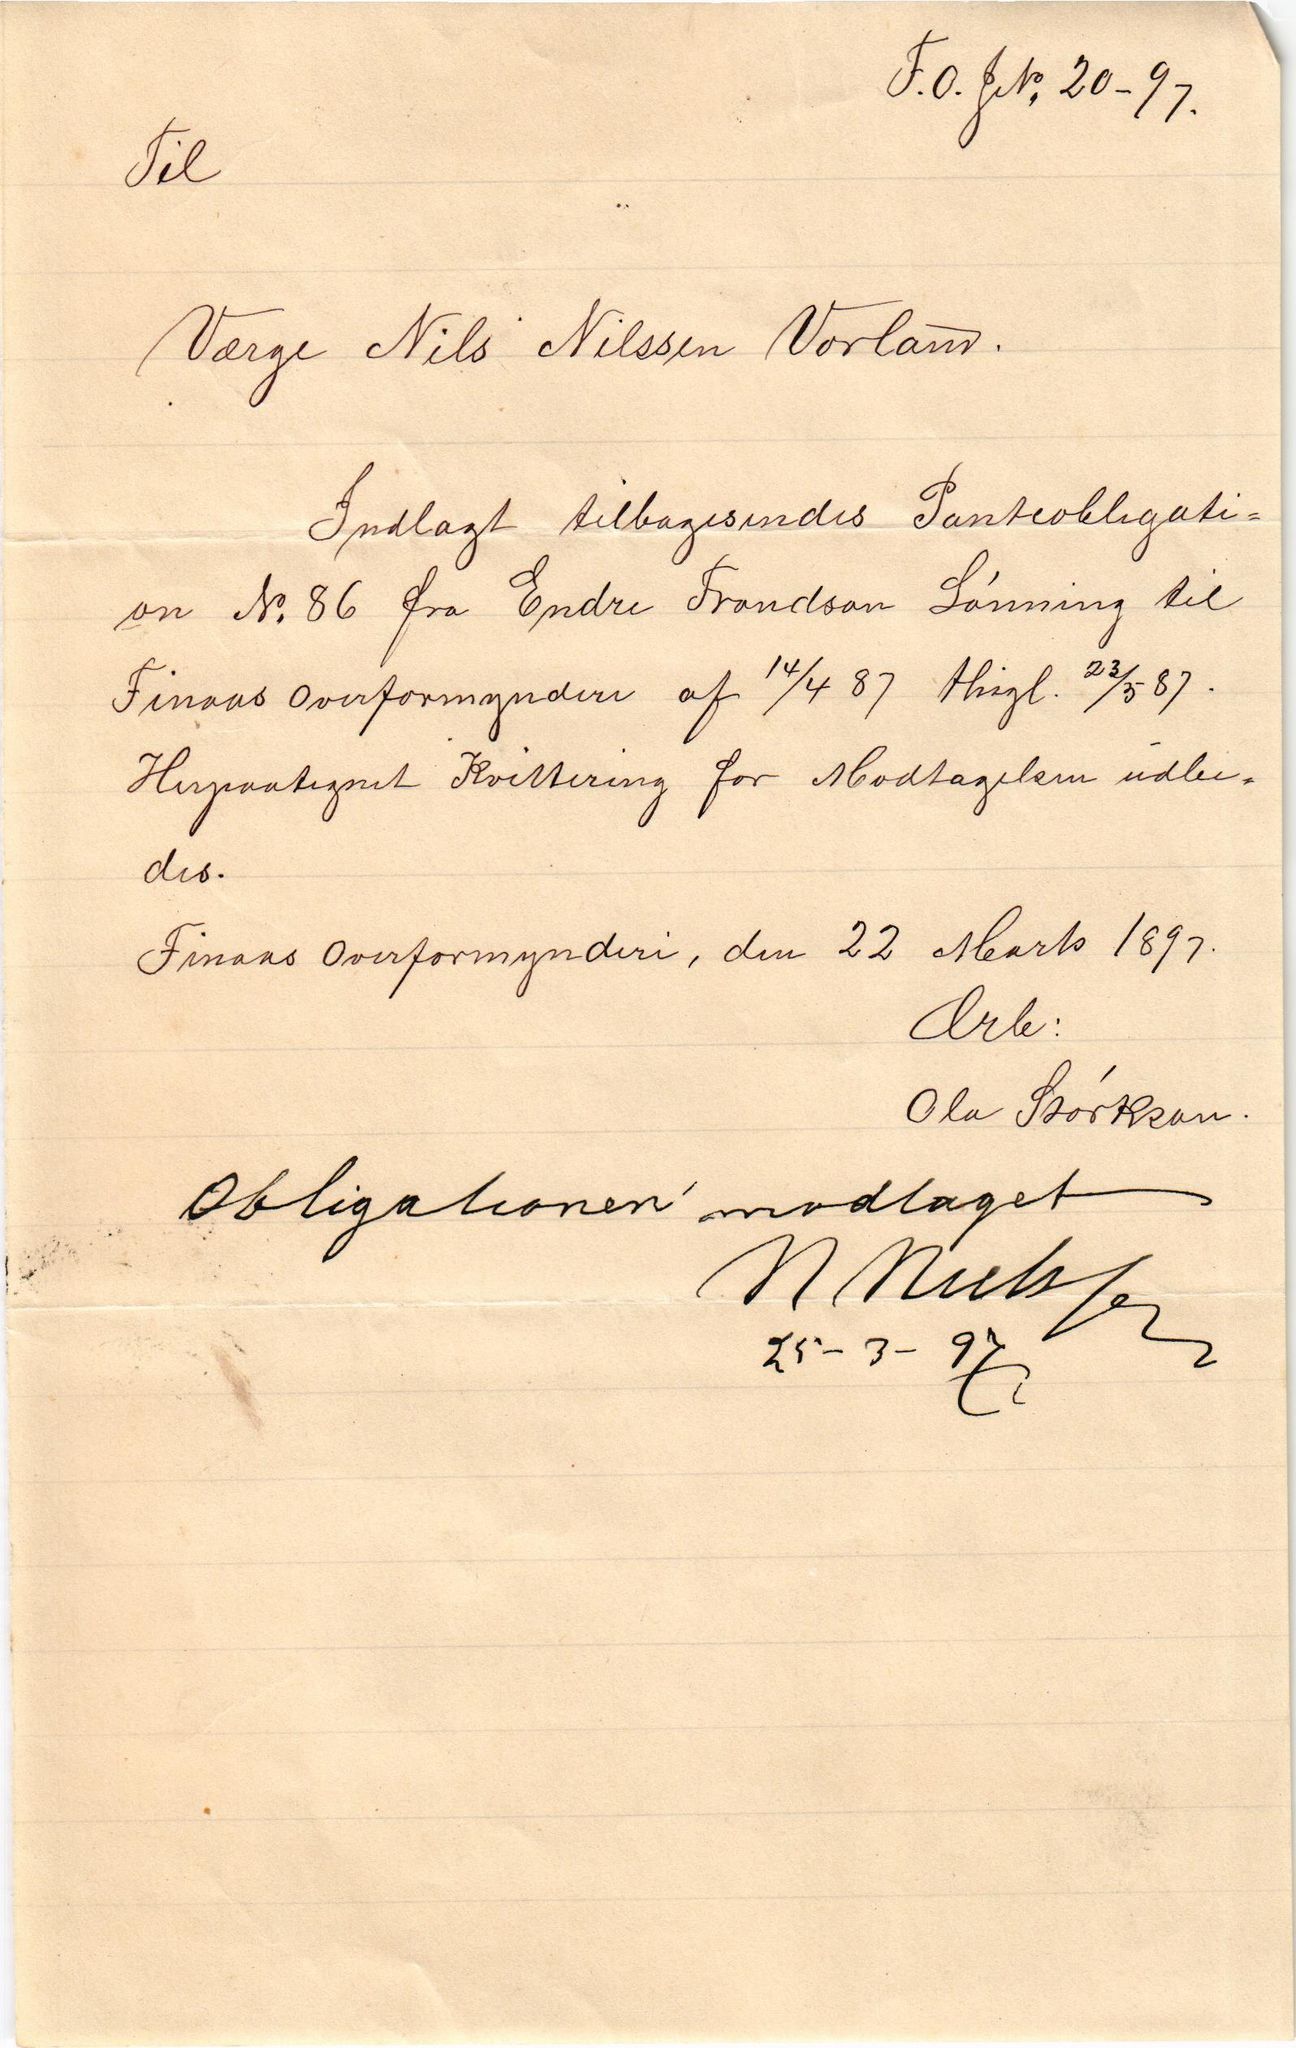 F.O. J.No. 20-97.
Til
Værge Nils Nilssen Vorland.
Indlagt tilbagesendes Panteobligati=
on No. 86 fra Endre Trondson Lönning til
Finaas Overformynderi af 14/4 87 thigl. 23/5 87.
Herpaategnet Kvittering for Modtagelsen udbe=
des.
Finaas Overformynderi, den 22 Marts 1897.
Ærb:
Ola Störkson.
Obligationen modtaget
N Nielsen
25-3-97